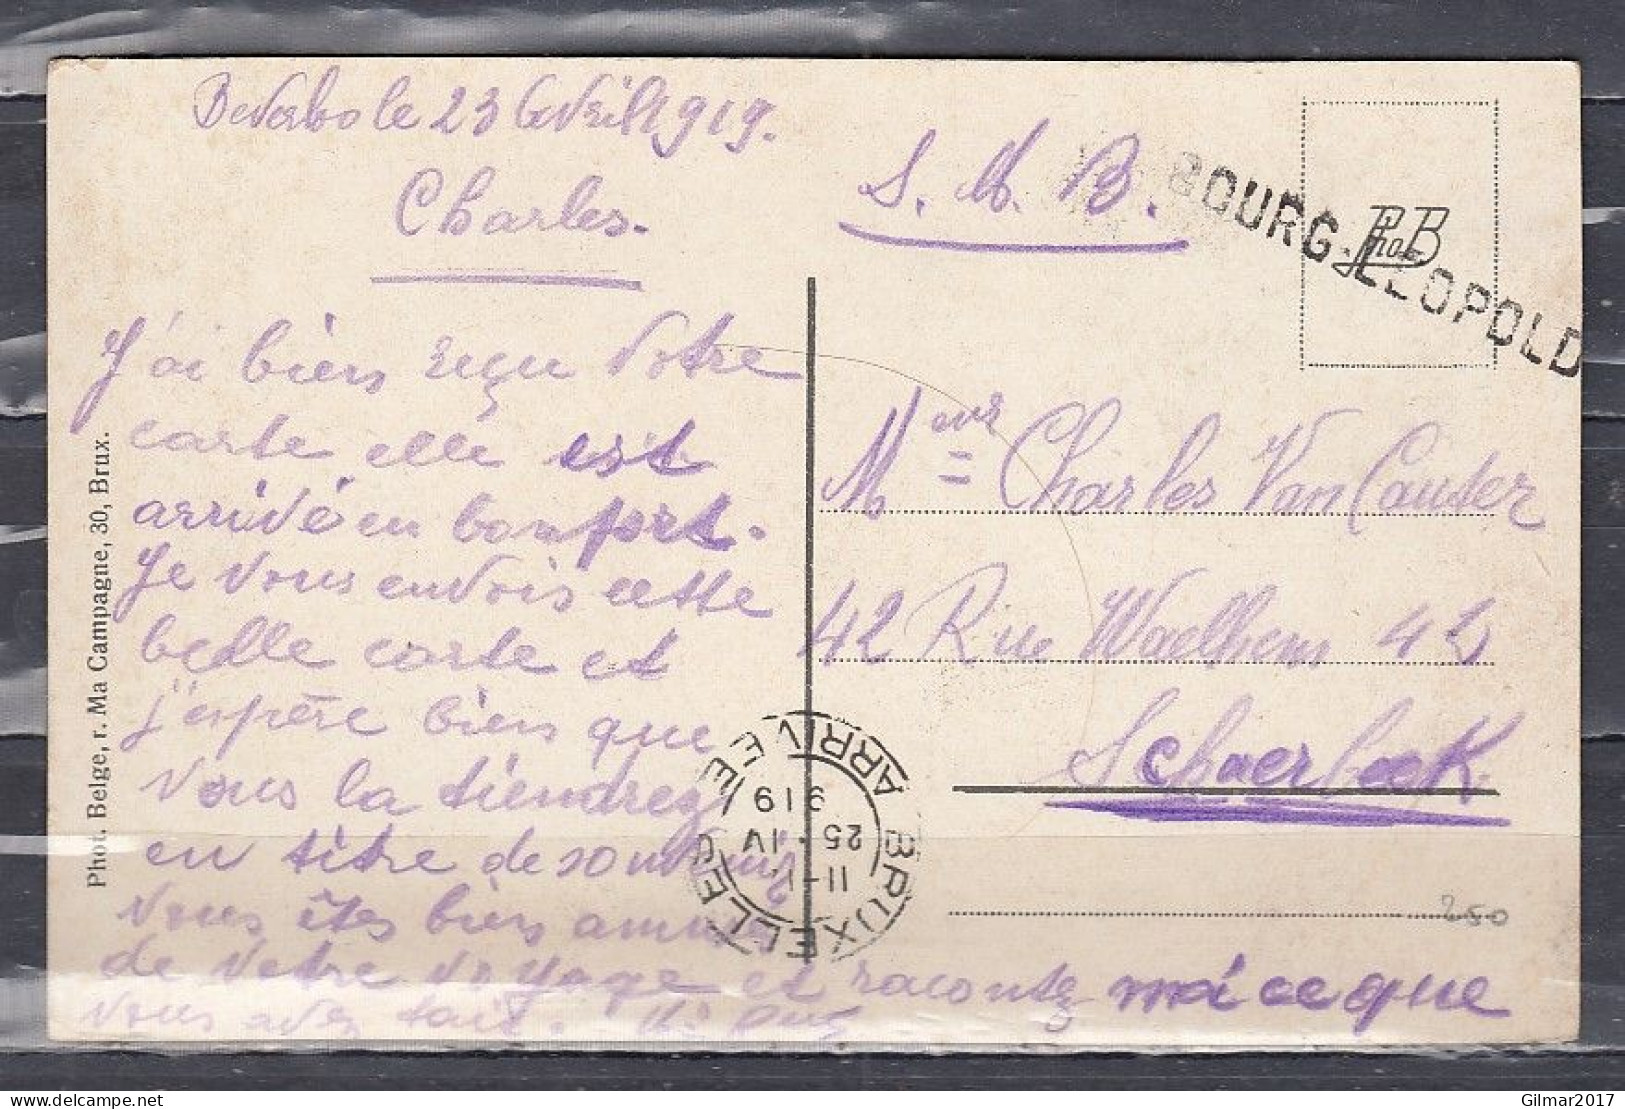 Beverloo le 23 Avril 1919.
Charles.
J'ai bien reçu votre
carte elle est
arrivé en bon port.
Je vous envois cette
belle carte et
j'espère bien que
vous la tiendrez
en titre de souvenir
vous êtes bien amusé
de votre voyage et racontez moi ce que
vous avez fait.
S. M. B.
BOURG-LEOPOLD
Phot B
Meur = Charles Van Cauter
42 Rue Waelhem 42
Schaerbeek.
BRUXELLES
ARRIVEE
25 · IV
919
250
Phot. Belge, r. Ma Campagne, 30, Brux.
delcampe.net
Gilmar2017